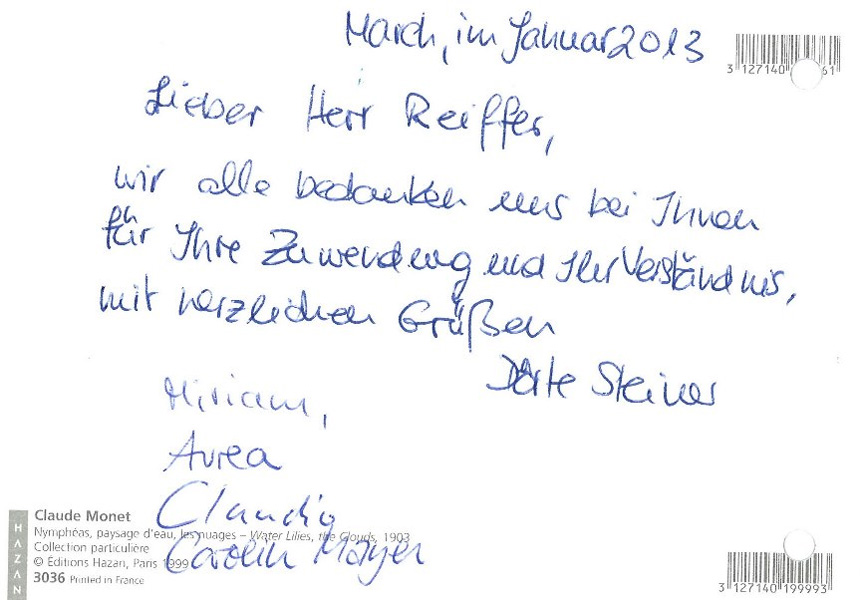 March, im Januar 2013
3 127140 61
Lieber Herr Reiffer,
wir alle bedanken uns bei Ihnen
für Ihre Zuwendung und Ihr Verständnis,
mit herzlichen Grüßen
Dörte Steiner
Miriam,
Aurea
Claudia
Carolin Mayer
HAZAN
Claude Monet
Nymphéas, paysage d'eau, les nuages – Water Lilies, the Clouds, 1903
Collection particulière
© Éditions Hazan, Paris 1999
3036 Printed in France
3 127140 199993